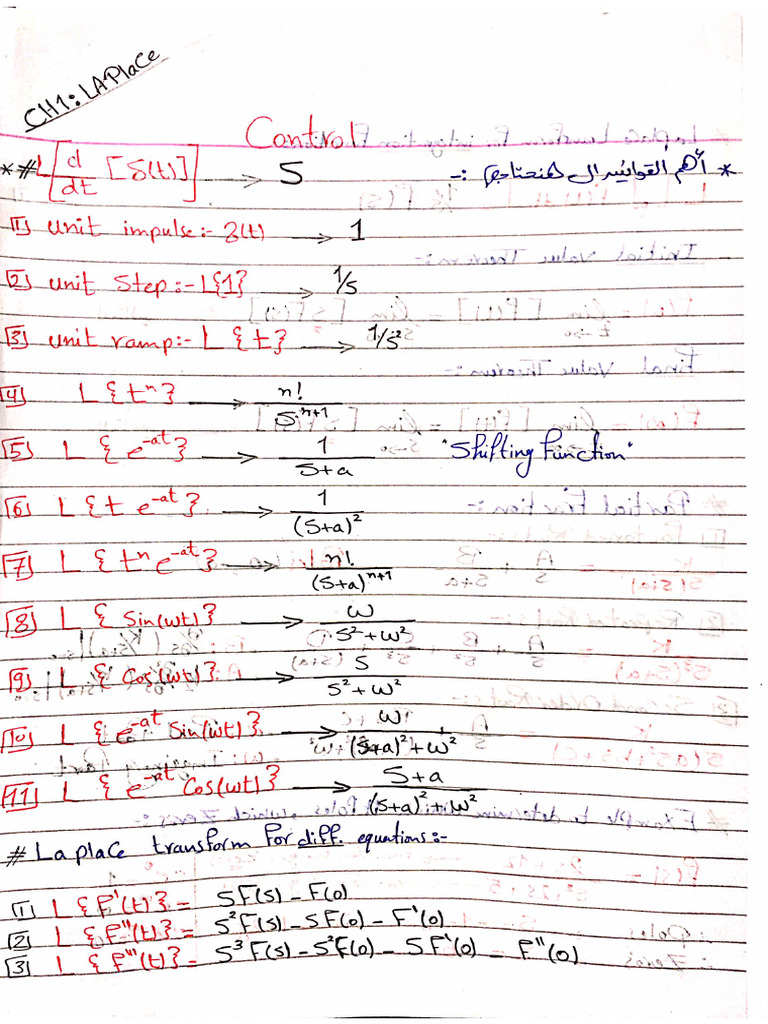 CH1: LAPlaCe
Control
* أهم القوانين ال هنحتاجها :-
*# L[d/dt [δ(t)]] → S
[1] unit impulse:- δ(t) → 1
[2] unit step:- L{1} → 1/S
[3] unit ramp:- L{t} → 1/S²
[4] L{tⁿ} → n!/Sⁿ⁺¹
[5] L{e^-at} → 1/(S+a) "Shifting Function"
[6] L{t e^-at} → 1/(S+a)²
[7] L{tⁿ e^-at} → n!/(S+a)ⁿ⁺¹
[8] L{Sin(ωt)} → ω/(S²+ω²)
[9] L{Cos(ωt)} → S/(S²+ω²)
[10] L{e^-at Sin(ωt)} → ω/((S+a)²+ω²)
[11] L{e^-at Cos(ωt)} → (S+a)/((S+a)²+ω²)
# Laplace transform for diff. equations:-
[1] L{F'(t)} = SF(s) - F(0)
[2] L{F''(t)} = S²F(s) - SF(0) - F'(0)
[3] L{F'''(t)} = S³F(s) - S²F(0) - SF'(0) - F''(0)